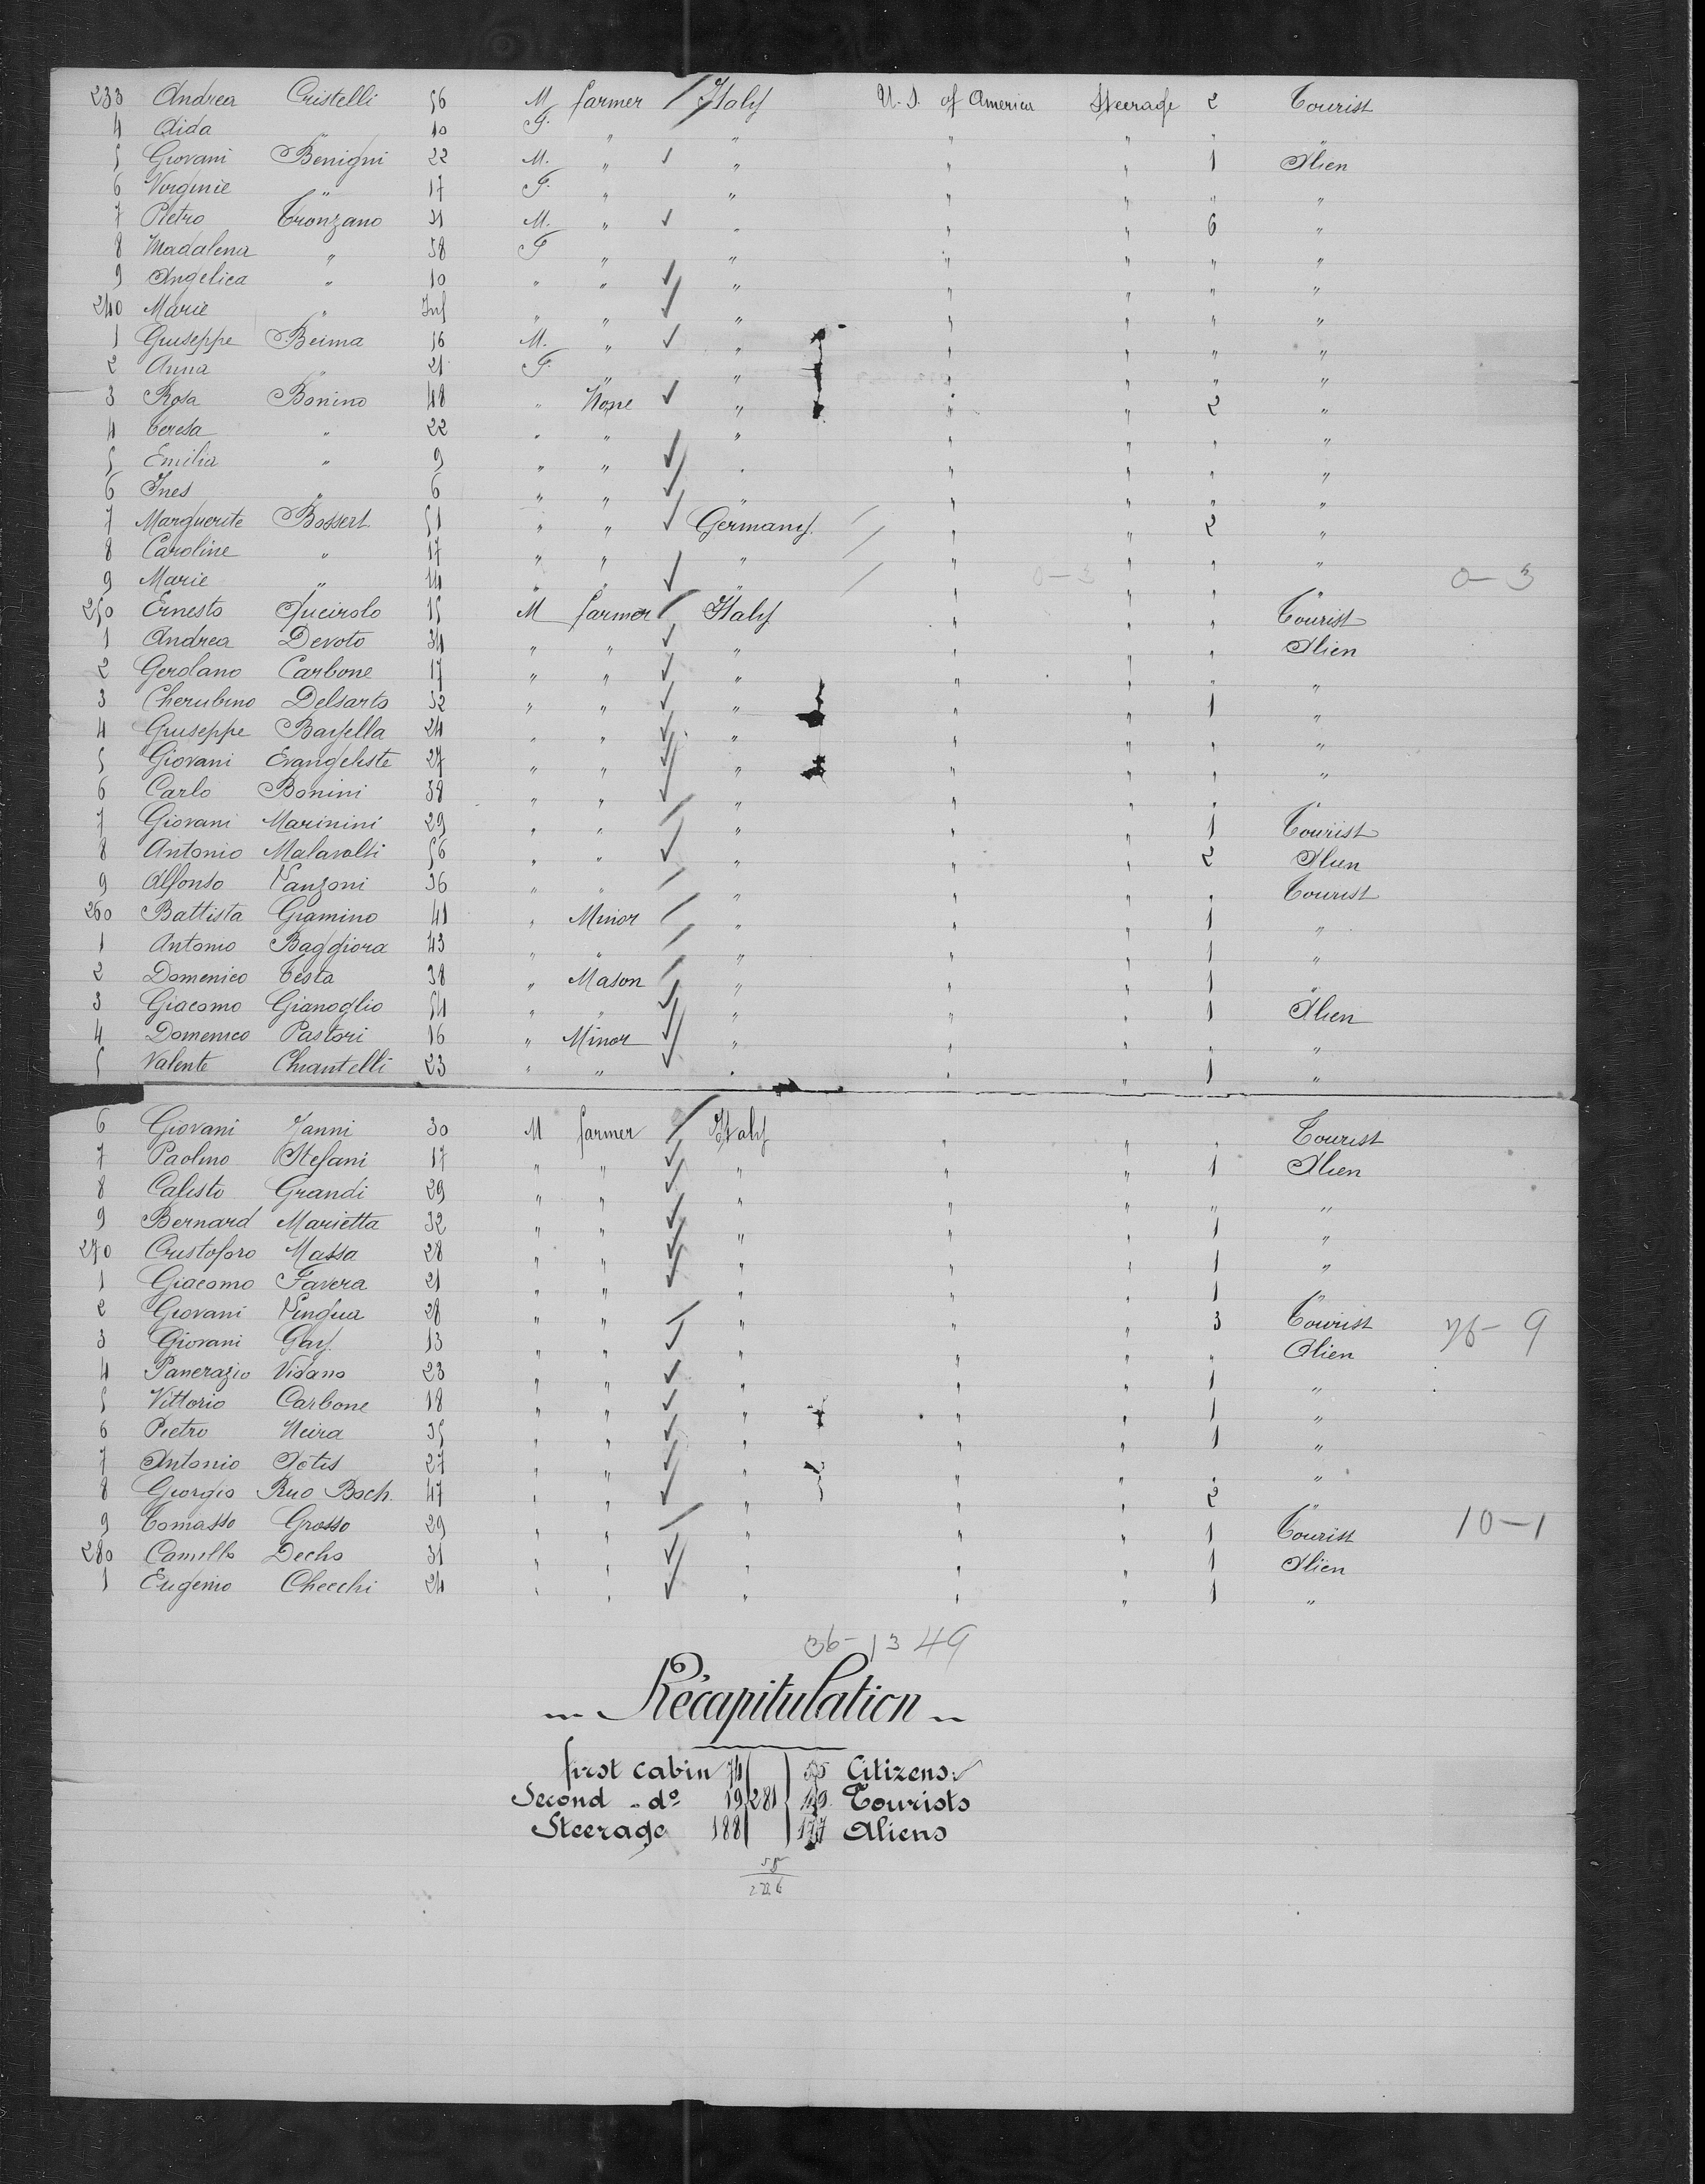 233 Andrea Cristelli 56 M farmer Italy U.S. of America Steerage 2 Tourist
4 Aida " 10 F. " " " " " "
5 Giovani Benigni 22 M. " " " " 1 Alien
6 Virginie " 17 F. " " " " " "
7 Pietro Tronzano 31 M. " " " " 6 "
8 Madalena " 38 F " " " " " "
9 Angelica " 10 " " " " " " "
240 Marie " Inf " " " " " " "
1 Giuseppe Beima 36 M. " " " " " "
2 Anna " 21 F. " " " " " "
3 Rosa Bonino 48 " None " " " 2 "
4 Teresa " 22 " " " " " " "
5 Emilia " 9 " " " " " " "
6 Ines " 6 " " " " " " "
7 Marguerite Bossert 51 " " Germany " " 2 "
8 Caroline " 17 " " " " " " "
9 Marie " 14 " " " " " " " 0-3
250 Ernesto Queirolo 15 M farmer Italy " " " Tourist
1 Andrea Devoto 34 " " " " " " Alien
2 Gerolano Carbone 17 " " " " " " "
3 Cherubino Delsarto 32 " " " " " 1 "
4 Giuseppe 24 " " " " " " "
5 Giovani Evangeliste 27 " " " " " " "
6 Carlo Bonini 38 " " " " " " "
7 Giovani Marinini 29 " " " " " 1 Tourist
8 Antonio Malavolti 56 " " " " " 2 Alien
9 Alfonso Vanzoni 36 " " " " " " Tourist
260 Battista Giamino 41 " Minor " " " 1 "
1 Antonio Baggiora 43 " " " " " 1 "
2 Domenico Testa 38 " Mason " " " 1 "
3 Giacomo Gianoglio 54 " " " " " 1 Alien
4 Domenico Pastori 16 " Minor " " " " "
5 Valente Chiantelli 23 " " " " " 1 "
6 Giovani Janni 30 M farmer Italy " " " Tourist
7 Paolino Stefani 17 " " " " " 1 Alien
8 Calisto Grandi 29 " " " " " " "
9 Bernard Marietta 32 " " " " " 1 "
270 Cristoforo Massa 28 " " " " " 1 "
1 Giacomo Favera 21 " " " " " 1 "
2 Giovani Vingua 28 " " " " " 3 Tourist
3 Giovani Gay. 13 " " " " " " Alien
4 Panerazio Vidano 23 " " " " " 1 "
5 Vittorio Carbone 18 " " " " " 1 "
6 Pietro Neira 35 " " " " " 1 "
7 Antonio 27 " " " " " " "
8 Giorgio Ruo Boch. 47 " " " " " 2 "
9 Tomasso Grosso 29 " " " " " 1 Tourist 10-1
280 Camillo Decho 31 " " " " " 1 Alien
1 Eugenio Checchi 24 " " " " " 1 "
36-13 49
Récapitulation
first cabin 74 Citizens
Second do 19 281 Tourists
Steerage 188 Aliens